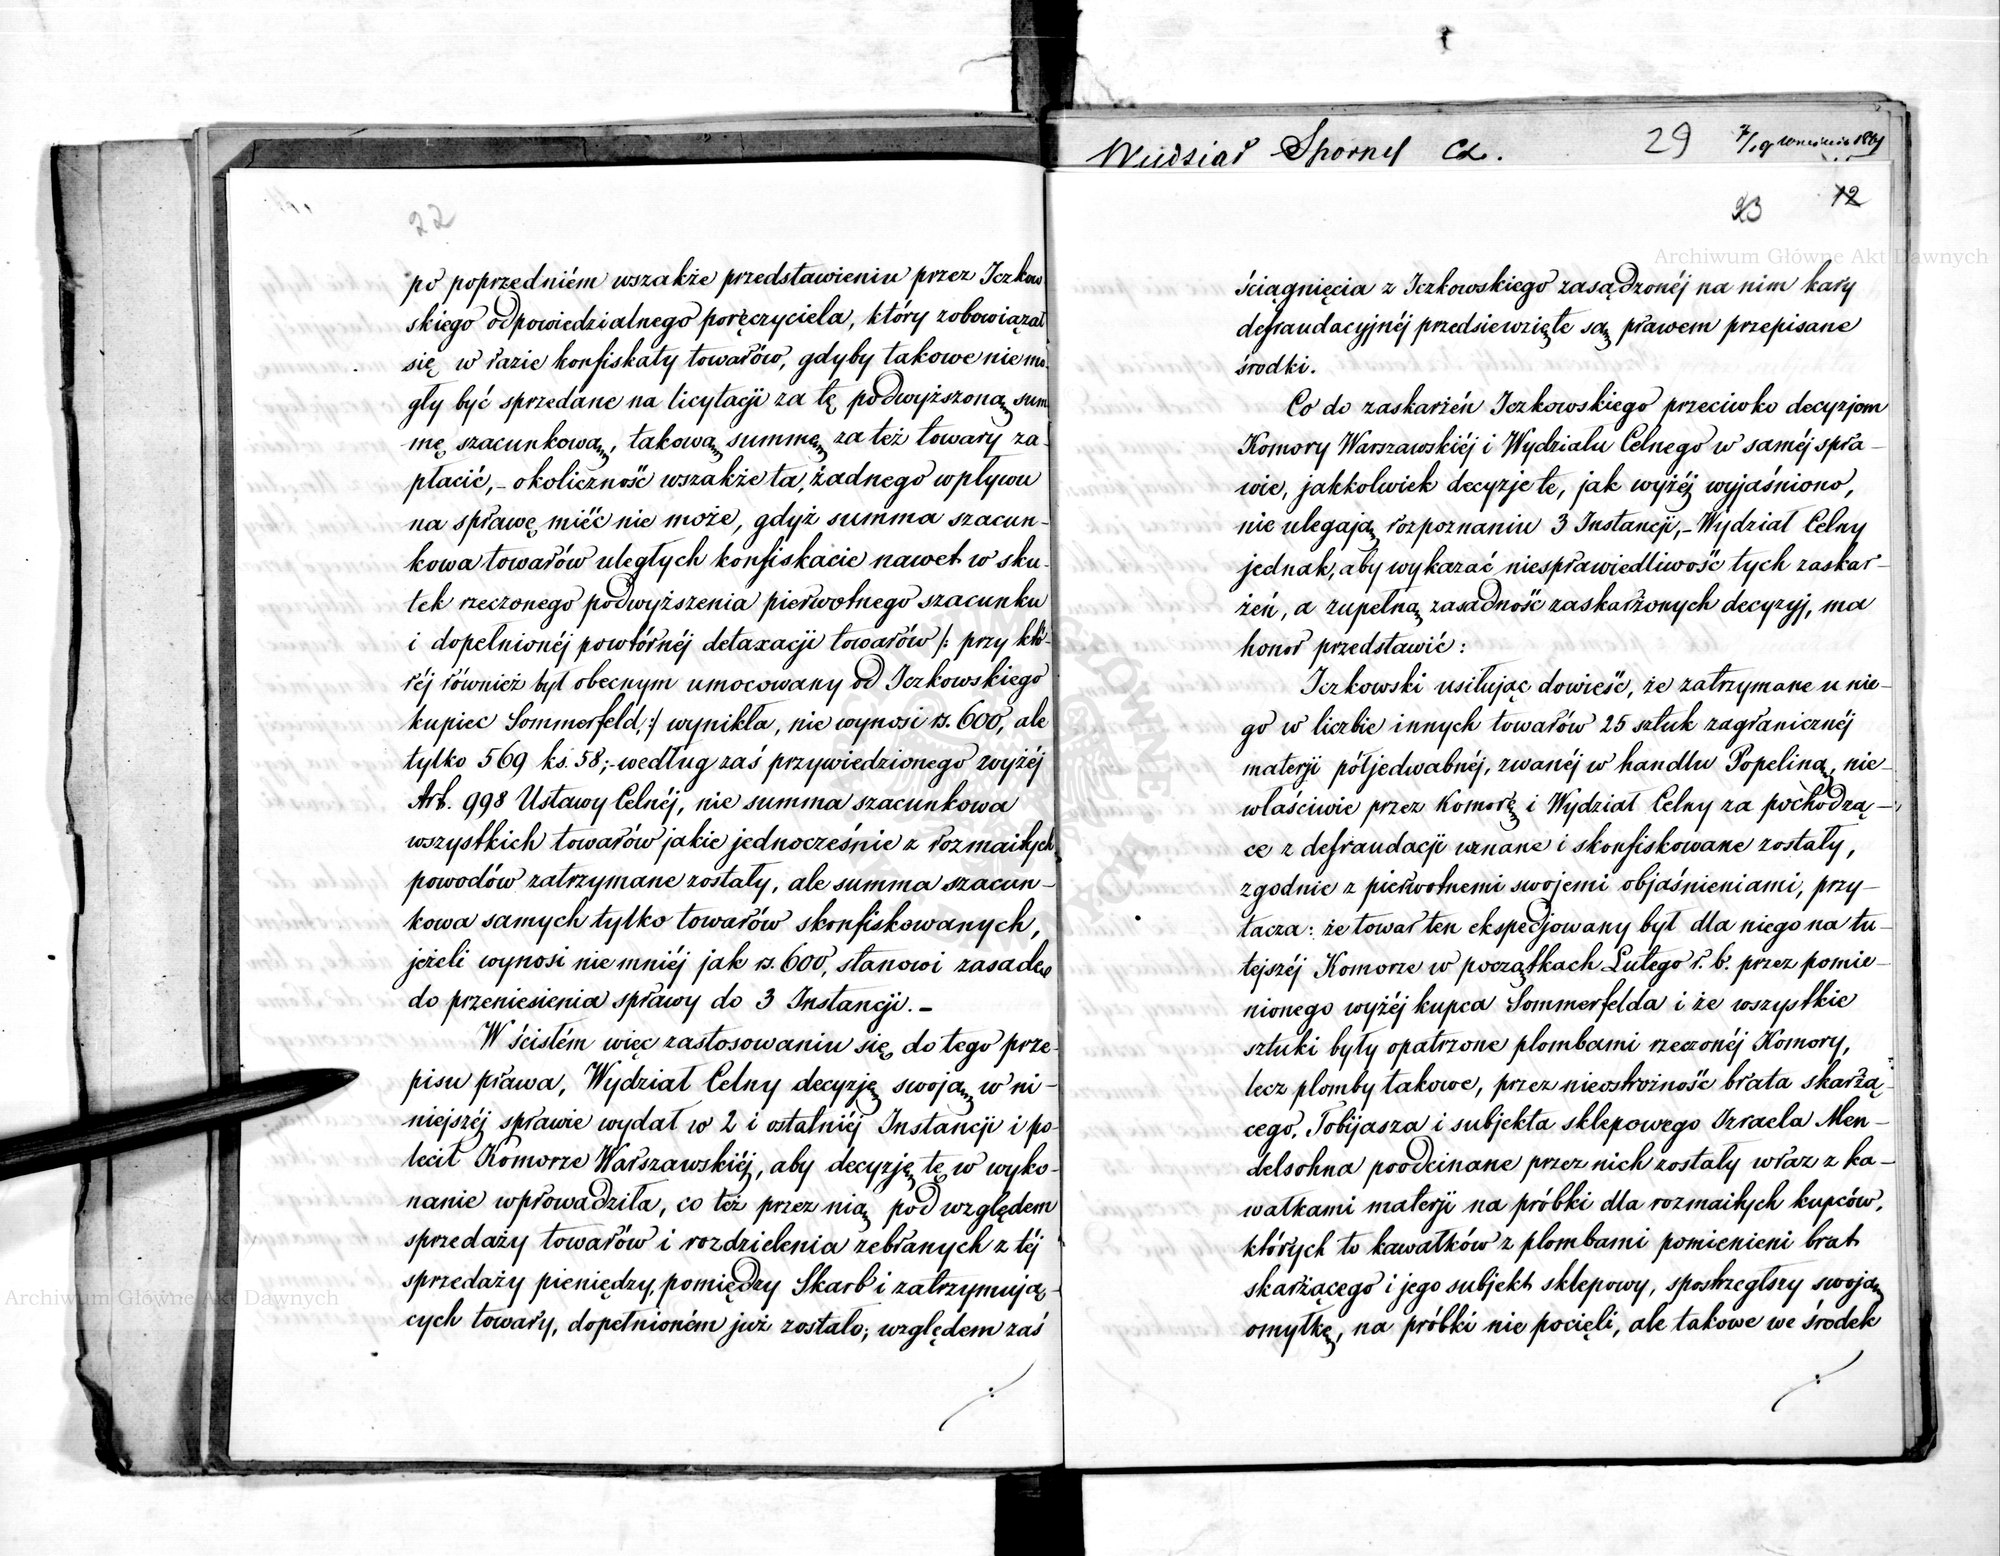 22
po poprzedniém wszakże przedstawieniu przez Iczkow
skiego odpowiedzialnego poręczyciela, który zobowiązał
się w razie konfiskaty towarów, gdyby takowe nie mo-
gły być sprzedane na licytacji za tę podwyższoną sum
mę szacunkową, takową summę za też towary za-
płacić, - okoliczność wszakże ta, żadnego wpływu
na sprawę mieć nie może, gdyż summa szacun-
kowa towarów uległych konfiskacie nawet w sku-
tek rzeczonego podwyższenia pierwotnego szacunku
i dopełnionéj powtórnéj detaxacji towarów /: przy któ-
réj również był obecnym umocowany od Iczkowskiego
kupiec Sommerfeld, :/ wynikła, nie wynosi rs. 600, ale
tylko 569 ks. 58; - według zaś przywiedzionego wyżéj
Art. 998 Ustawy Celnéj, nie summa szacunkowa
wszystkich towarów jakie jednocześnie z rozmaitych
powodów zatrzymane zostały, ale summa szacun-
kowa samych tylko towarów skonfiskowanych,
jeżeli wynosi nie mniéj jak rs. 600, stanowi zasadę
do przeniesienia sprawy do 3 Instancji. -
W ścisłém więc zastosowaniu się do tego prze-
pisu prawa, Wydział Celny decyzję swoją w ni-
niejszéj sprawie wydał w 2 i ostatniéj Instancji i po-
lecił Komorze Warszawskiéj, aby decyzję tę w wyko-
nanie wprowadziła, co też przez nią pod względem
sprzedaży towarów i rozdzielenia zebranych z téj
sprzedaży pieniędzy, pomiędzy Skarb i zatrzymują-
cych towary, dopełnioném już zostało; względem zaś
Wydział Sporny Cz. 29
23 12
ściągnięcia z Iczkowskiego zasądzonéj na nim kary
defraudacyjnéj przedsięwzięte są prawem przepisane
środki.
Co do zaskarżéń Iczkowskiego przeciwko decyzjom
Komory Warszawskiéj i Wydziału Celnego w saméj spra-
wie, jakkolwiek decyzje te, jak wyżéj wyjaśniono,
nie ulegają rozpoznaniu 3 Instancji, - Wydział Celny
jednak, aby wykazać niesprawiedliwość tych zaskar-
żéń, a zupełną zasadność zaskarżonych decyzyj, ma
honor przedstawić:
Iczkowski usiłując dowieść, że zatrzymane u nie-
go w liczbie innych towarów 25 sztuk zagranicznéj
materji półjedwabnéj, zwanéj w handlu Popeliną, nie-
właściwie przez Komorę i Wydział Celny za pochodzą-
ce z defraudacji uznane i skonfiskowane zostały,
zgodnie z pierwotnemi swojemi objaśnieniami, przy-
tacza: że towar ten ekspedjowany był dla niego na tu-
tejszéj Komorze w początkach Lutego r. b. przez pomie-
nionego wyżéj kupca Sommerfelda i że wszystkie
sztuki były opatrzone plombami rzeczonéj Komory,
lecz plomby takowe, przez nieostrożność brata skarżą-
cego, Tobijasza i subjekta sklepowego Izraela Men-
delsohna poodcinane przez nich zostały wraz z ka-
wałkami materji na próbki dla rozmaitych kupców,
których to kawałków z plombami pomienieni brat
skarżącego i jego subjekt sklepowy, spostrzegłszy swoją
omyłkę, na próbki nie pocięli, ale takowe we środek
Archiwum Główne Akt Dawnych
Archiwum Główne Akt Dawnych